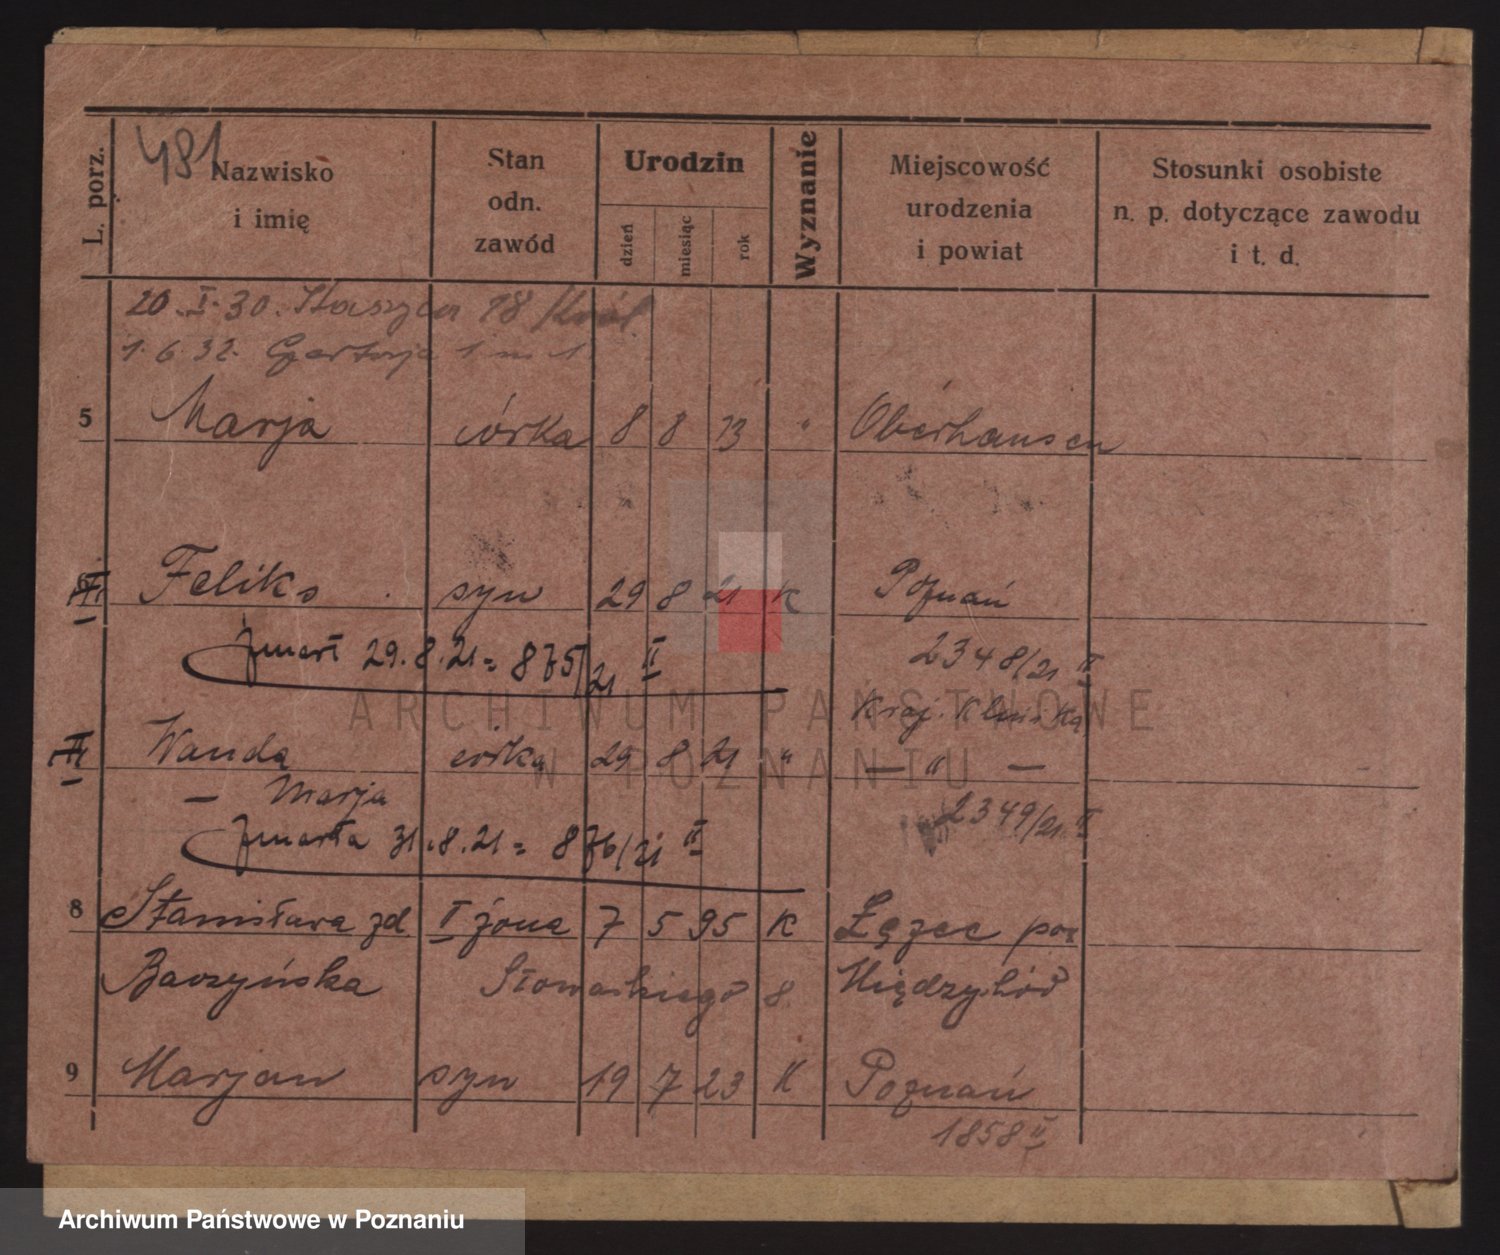 481
L. porz.
Nazwisko
i imię
Stan
odn.
zawód
Urodzin
dzień
miesiąc
rok
Wyznanie
Miejscowość
urodzenia
i powiat
Stosunki osobiste
n. p. dotyczące zawodu
i t. d.
20. I. 30. Staszyca 18
1. 6. 32. 1 m 1.
5 Marja córka 8 8 13 " Oberhausen
Feliks syn 29 8 21 K Poznań
zmarł 29.8.21 = 875/21 II 2348/21 II
ARCHIWUM PAŃSTWOWE
W POZNANIU
II Wanda córka 29 8 21 " — " —
— Marja 2349/21 II
zmarła 31.8.21 = 876/21 II
8 Stanisława zd I żona 7 5 95 K Łęzec pow
Baczyńska Słowackiego 8. Międzychód
9 Marjan syn 19 7 23 K Poznań
1858 II
Archiwum Państwowe w Poznaniu